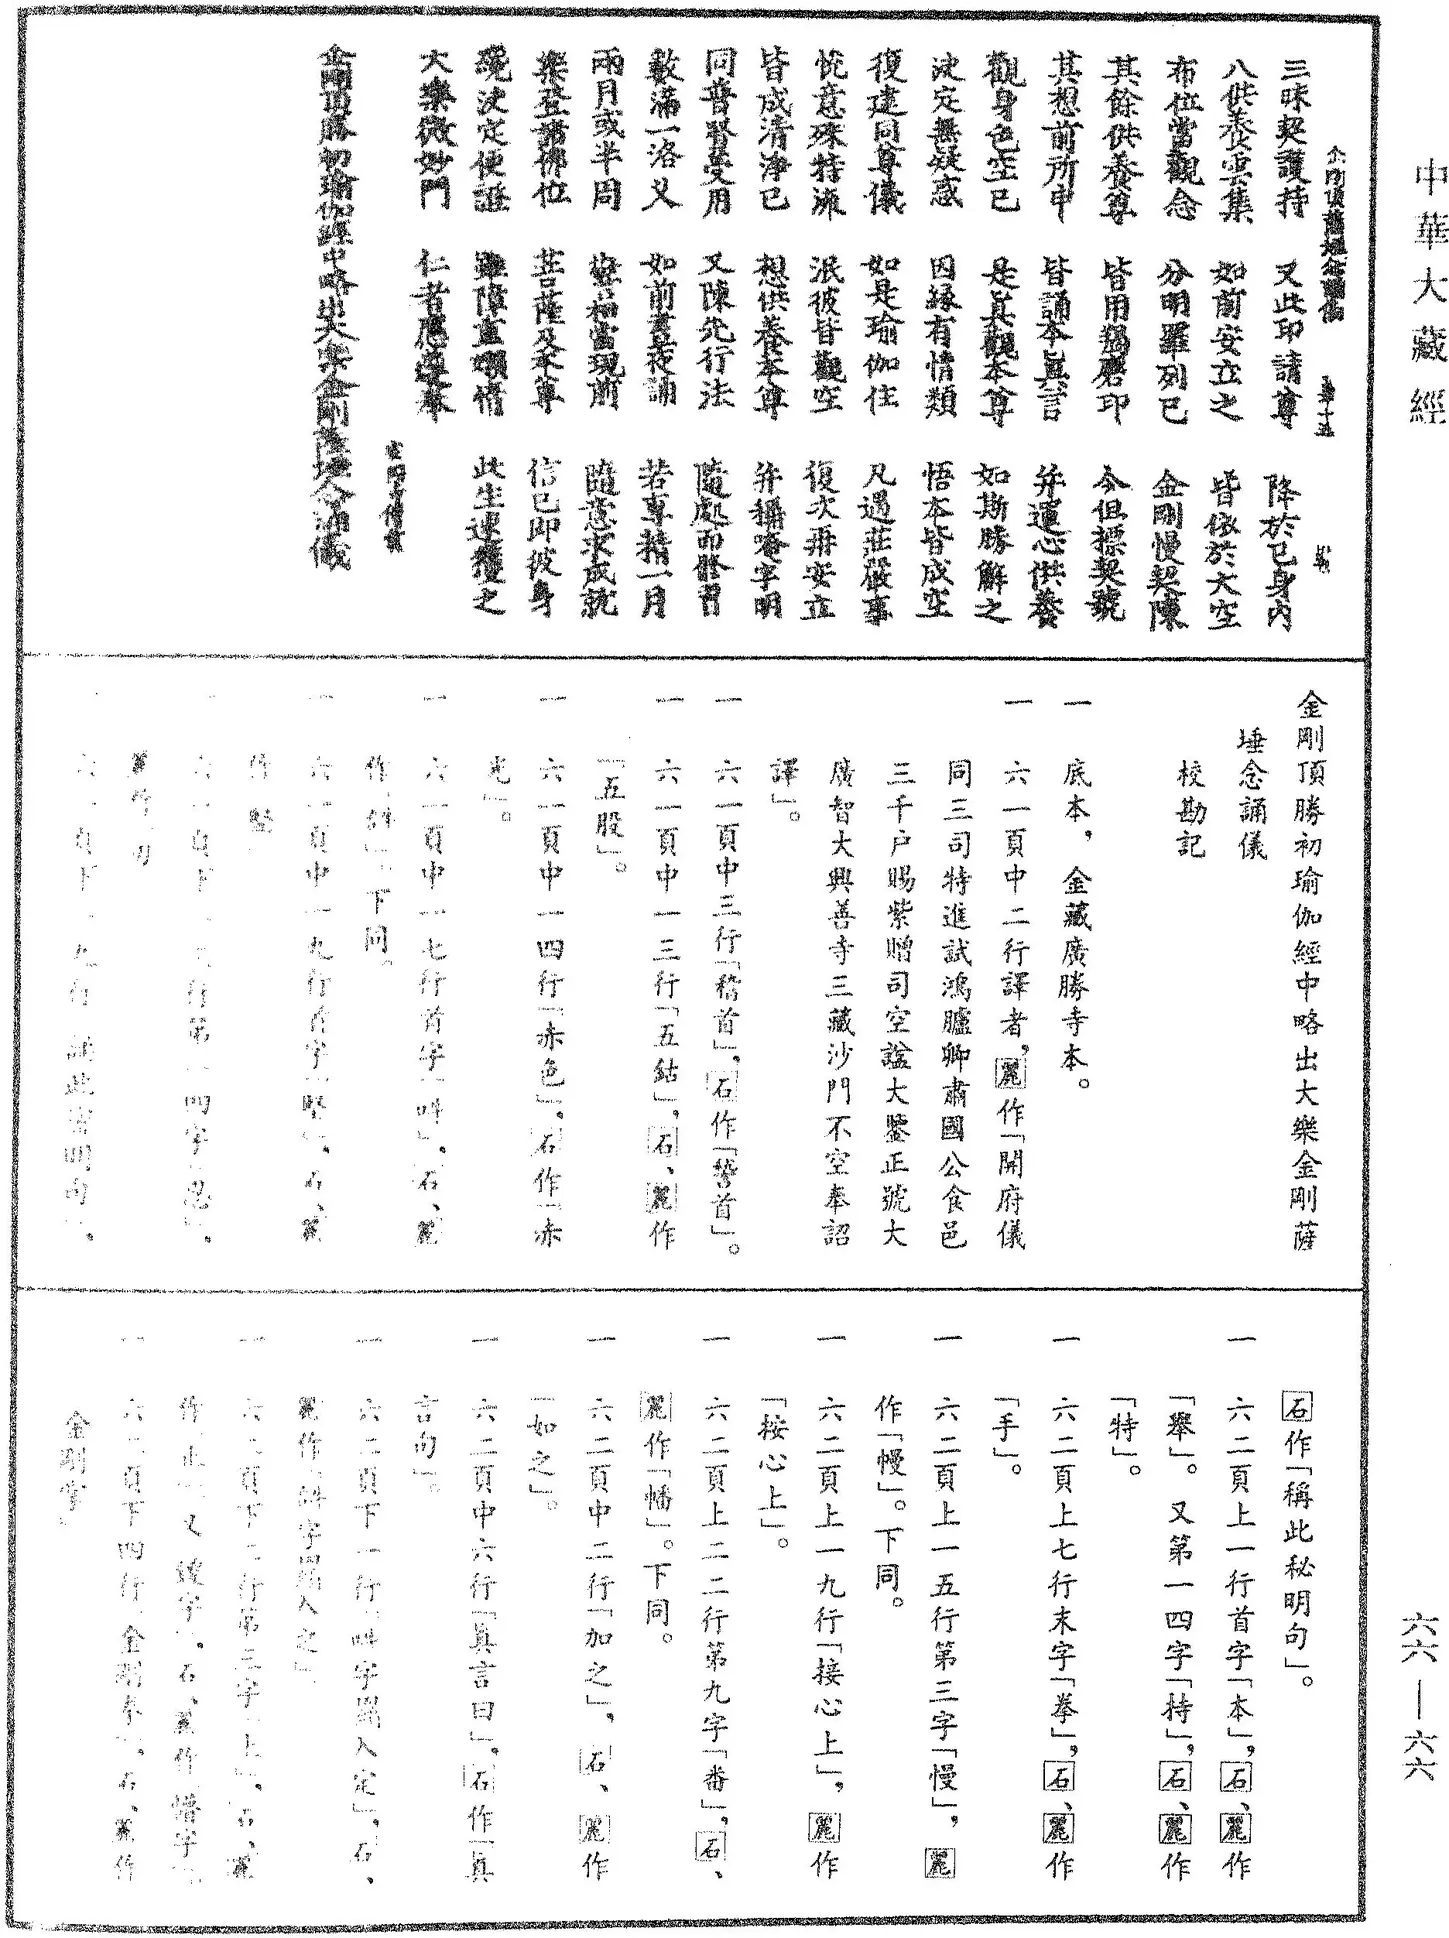 中華大藏經
三昧契護持　又此印請尊　降於己身內
八供養雲集　如前安立之　皆依於大空
布位當觀念　分明羅列已　金剛慢契陳
其餘供養尊　皆用羯磨印　今但標契號
其想前所申　皆誦本真言　并運心供養
觀身色空已　是真觀本尊　如斯勝解之
決定無疑惑　因緣有情類　悟本皆成空
復建同尊儀　如是瑜伽住　凡遇莊嚴事
悅意殊特流　泯彼皆觀空　復次再安立
皆成清淨已　想供養本尊　并稱唵字明
同普賢受用　又陳先行法　隨處而修習
數滿一洛叉　如前晝夜誦　若專精一月
兩月或半周　福當現前　隨意求成就
樂登諸佛位　菩薩及本尊　信已即彼身
決定便証　雖障重嬾惰　此生速獲之
大樂微妙門　仁者應
金剛頂勝初瑜伽經中略出大樂金剛薩埵念誦儀
金剛頂勝初瑜伽經中略出大樂金剛薩
埵念誦儀
校勘記
一　底本，金藏廣勝寺本。
一　六一頁中二行譯者，麗作「開府儀
同三司特進試鴻臚卿肅國公食邑
三千户賜紫贈司空謚大鑒正號大
廣智大興善寺三藏沙門不空奉詔
譯」。
一　六一頁中三行「稽首」，石作「䭫首」。
一　六一頁中一三行「五鈷」，石、麗作
「五股」。
一　六一頁中一四行「赤色」，石作「赤
光」。
一　六一頁中一七行首字「吽」，石、麗
作「𤙖」，下同。
一　六一頁中一九行首字「堅」，石、麗
作「豎」
六一頁下 行第一四字「忍」，
麗作「刃
六一頁下 九行「誦此密明句」，
石作「稱此秘明句」。
一　六二頁上一行首字「本」，石、麗作
「舉」。又第一四字「持」，石、麗作
「特」。
一　六二頁上七行末字「拳」，石、麗作
「手」。
一　六二頁上一五行第三字「慢」，麗
作「幔」。下同。
一　六二頁上一九行「接心上」，麗作
「按心上」。
一　六二頁上二二行第九字「番」，石、
麗作「幡」。下同。
一　六二頁中二行「加之」，石、麗作
「如之」。
一　六二頁中六行「真言曰」，石作「真
言句」。
一　六二頁下一行「吽字誾入定」，石、
麗作「𤙖字誾入之」
一　六二頁下二行第三字「上」，石、麗
作「止」。又「鍐字」，石、麗作「 字」
一　六二頁下四行「金剛拳」，石、麗作
「金剛掌」
六六—六六